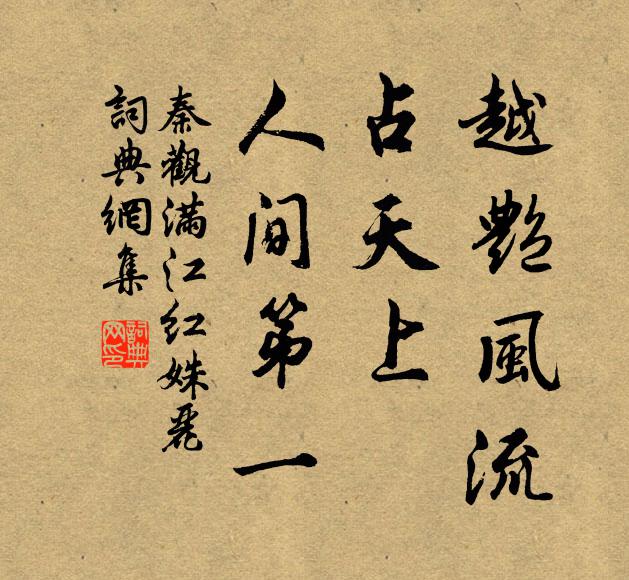 越艷風流
占天上
人间第一
秦觀滿江紅姝麗
詞典網集
詞典
网印